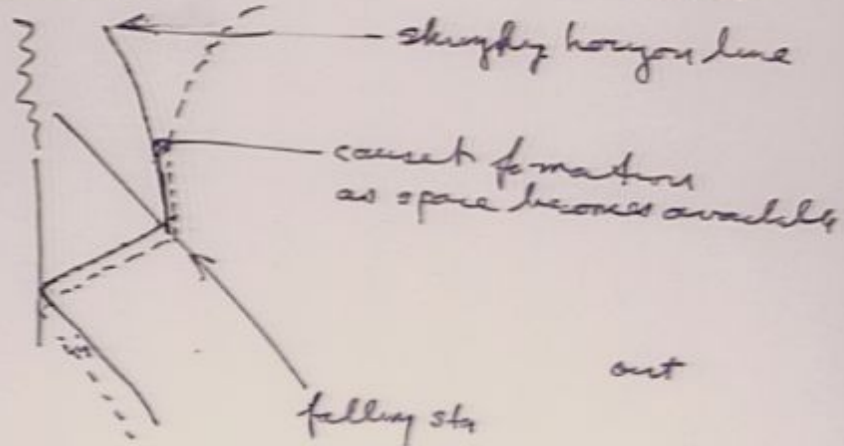 horizon line
causet formation
as space becomes available
out
falling